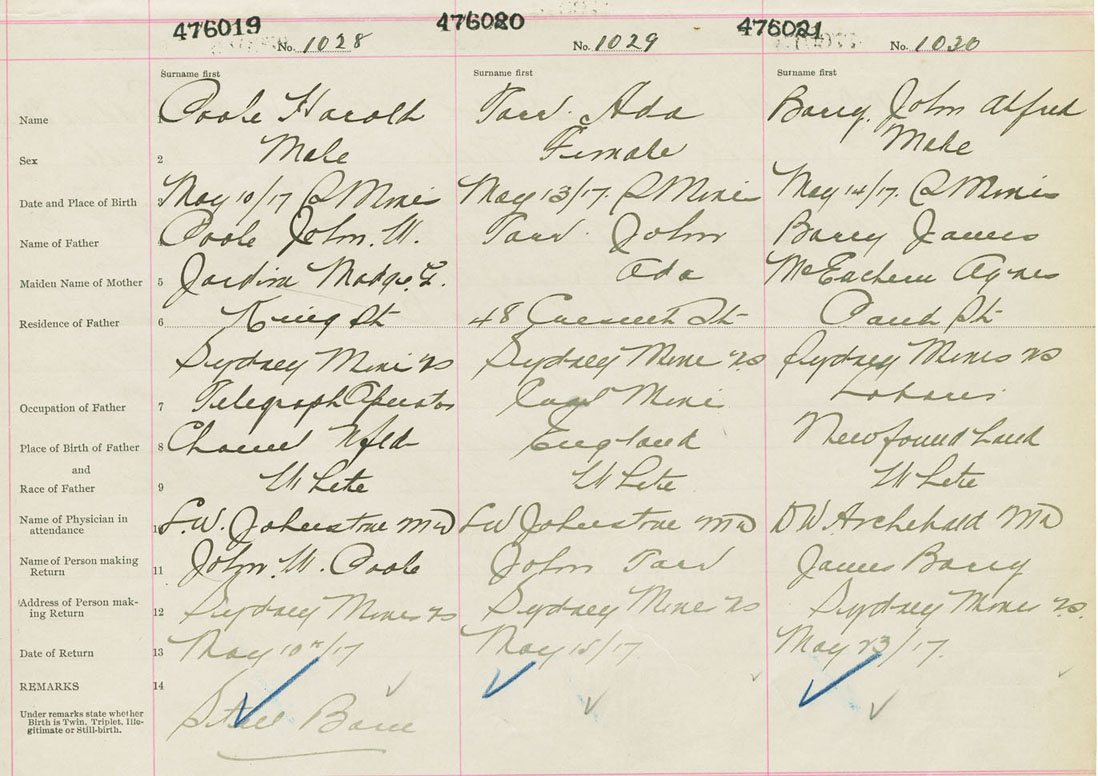 476019 476020 476021
No. 1028 No. 1029 No. 1030
Surname first Surname first Surname first
Name 1 Poole Harold Tarr Ada Barry, John Alfred
Sex 2 Male Female Male
Date and Place of Birth 3 May 10/17 S Mines May 13/17. S Mines May 14/17. S Mines
Name of Father Poole John. W. Tarr John Barry James
Maiden Name of Mother 5 Madge. Ada McEachern Agnes
Residence of Father 6 King St 48 Crescent St St
Sydney Mines NS Sydney Mines NS Sydney Mines NS
Occupation of Father 7 Telegraph Operator Coal Mine Laborer
Place of Birth of Father 8 Nfld England Newfoundland
and
Race of Father 9 White White White
Name of Physician in
attendance 10 L.W. Johnstone MD LW Johnstone MD DW Archibald MD
Name of Person making
Return 11 John. W. Poole John Tarr James Barry
Address of Person mak-
ing Return 12 Sydney Mines NS Sydney Mines NS Sydney Mines NS.
Date of Return 13 May 10th/17 May 15/17. May 23/17.
REMARKS 14
Under remarks state whether
Birth is Twin, Triplet, Ille-
gitimate or Still-birth.
Still Born